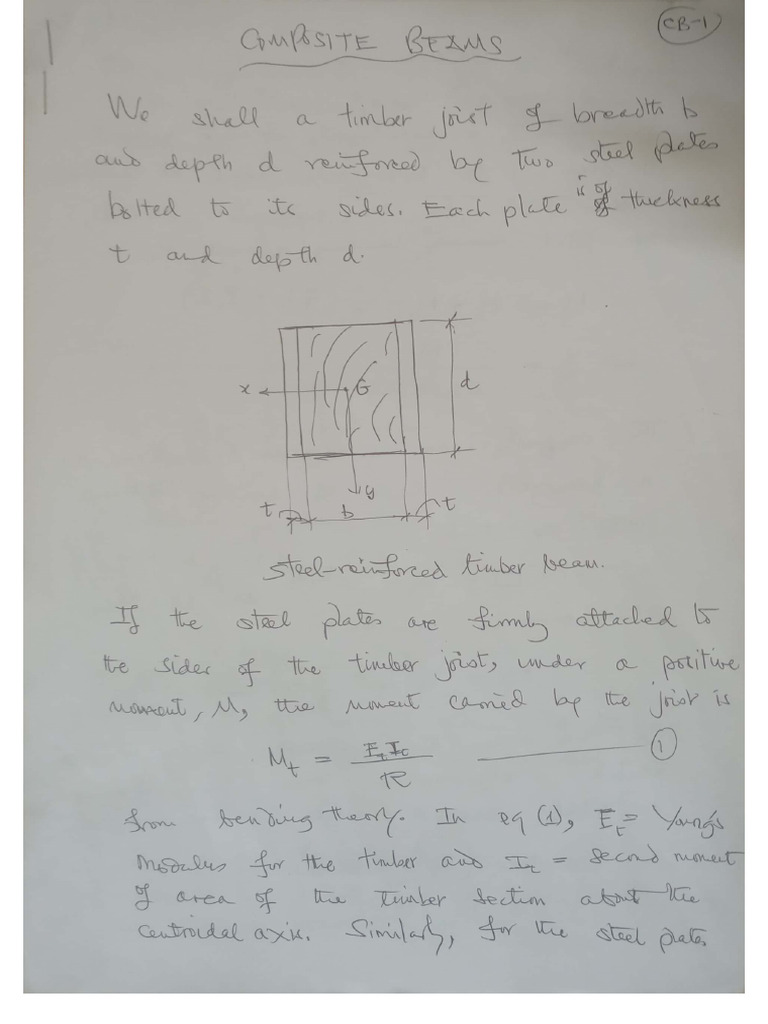 CB-1
COMPOSITE BEAMS
We shall a timber joist of breadth b
and depth d reinforced by two steel plates
bolted to its sides. Each plate is of thickness
t and depth d.
x G d
y
t b t
steel-reinforced timber beam.
If the steel plates are firmly attached to
the sides of the timber joist, under a positive
moment, M, the moment carried by the joist is
Mt = EtIt / R ——— 1
from bending theory. In eq (1), Et = Young's
Modulus for the timber and It = second moment
of area of the timber section about the
centroidal axis. Similarly, for the steel plates